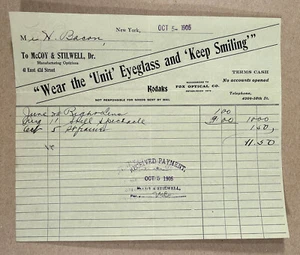 New York, OCT 5- 1908
M H. Bacon,
To McCOY & STILWELL, Dr.
Manufacturing Opticians
41 East 42d Street
"Wear the 'Unit' Eyeglass and 'Keep Smiling'"
Kodaks
SUCCESSORS TO
FOX OPTICAL CO.
TERMS CASH
No accounts opened
Telephone
NOT RESPONSIBLE FOR GOODS SENT BY MAIL
June 1.00
Aug 11 Shell Spectacle 9.00 10.00
Oct 5 1.50
11.50
RECEIVED PAYMENT,
OCT 5 1908
McCOY & STILWELL,